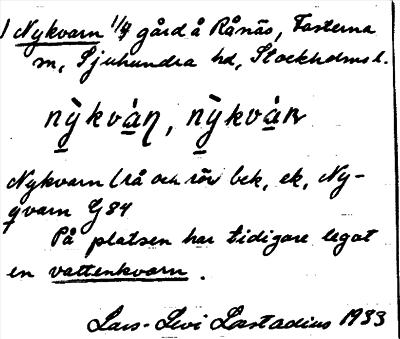 1 Nykvarn 1/4 gård å Rånäs, Fasterna
sn, Sjuhundra hd, Stockholms l.
nỳkvàɳ, nỳkvàr
Nykvarn (rå och rör bek, ek, Ny-
qvarn G84
På platsen har tidigare legat
en vattenkvarn.
Lars-Levi Læstadius 1933